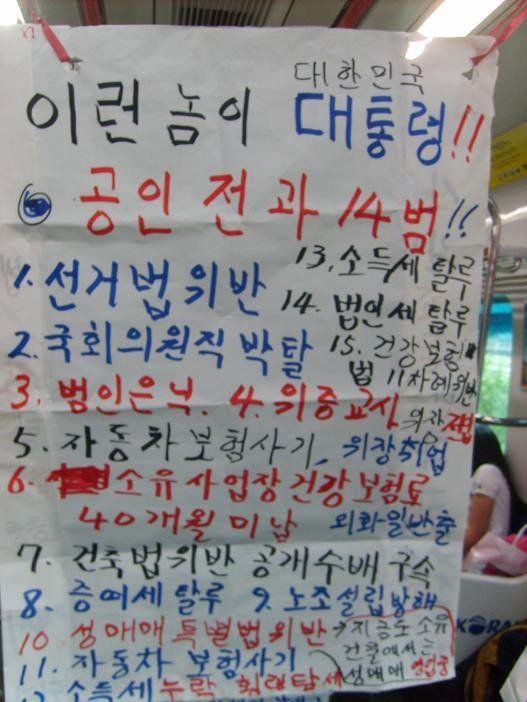 대한민국
이런 놈이 대통령!!
⑥ 공인 전과 14범!!
1. 선거법위반
13. 소득세 탈루
14. 법인세 탈루
2. 국회의원직 박탈
15. 건강보험
법 11차례위반
3. 범인은닉. 4. 위증교사
위장 전입
5. 자동차보험사기, 위장취업
6. 소유사업장건강보험료
40개월 미납 외화일반출
7. 건축법위반 공개수배 구속
8. 증여세 탈루 9. 노조설립방해
10 성매매 특별법위반 → 지금도 소유
건물에서
11. 자동차 보험사기 성매매 영업중
12 소득세누락 횡령탈세
KORAIL